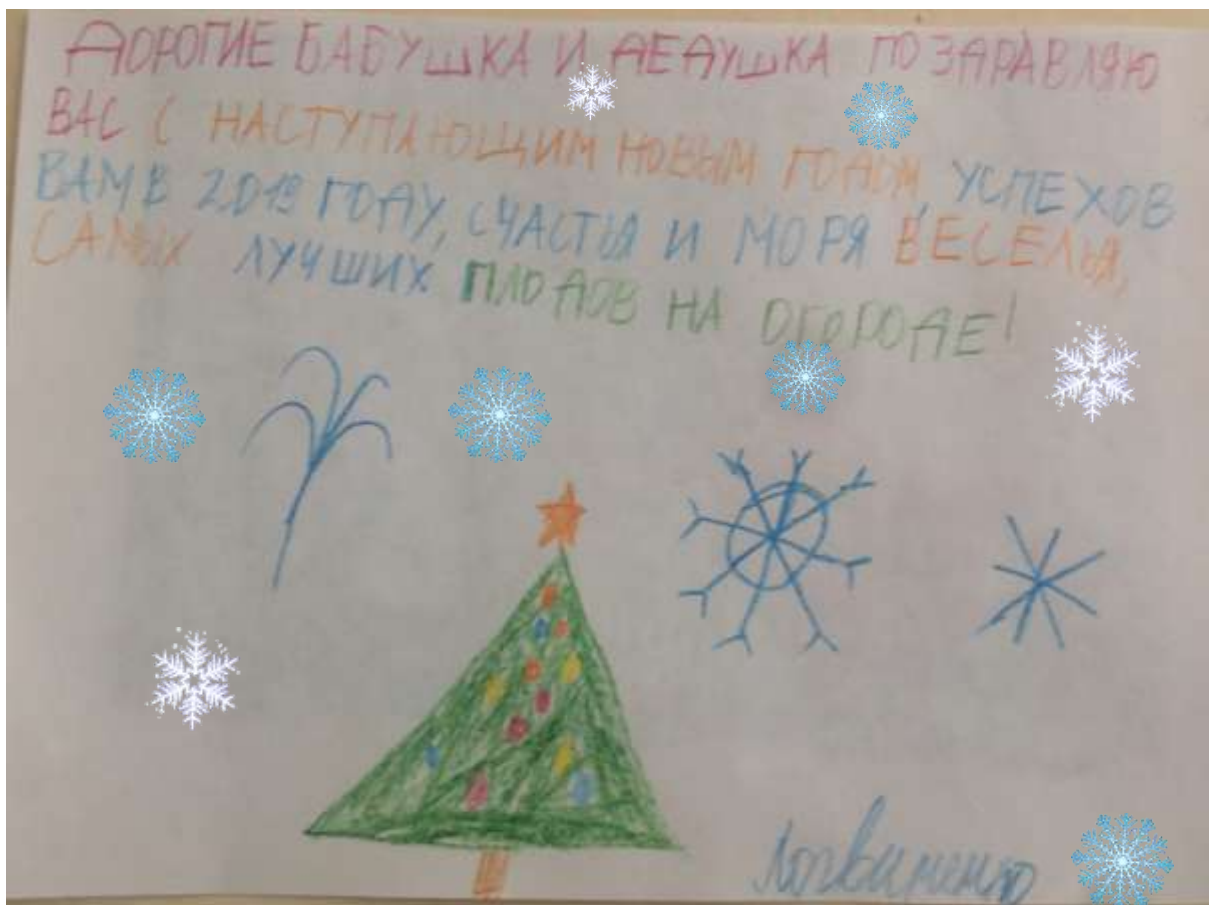 ДОРОГИЕ БАБУШКА И ДЕДУШКА ПОЗДРАВЛЯЮ
ВАС С НАСТУПАЮЩИМ НОВЫМ ГОДОМ, УСПЕХОВ
ВАМ В 2019 ГОДУ, СЧАСТЬЯ И МОРЯ ВЕСЕЛЬЯ,
САМЫХ ЛУЧШИХ ПЛОДОВ НА ОГОРОДЕ!
Логвиненко